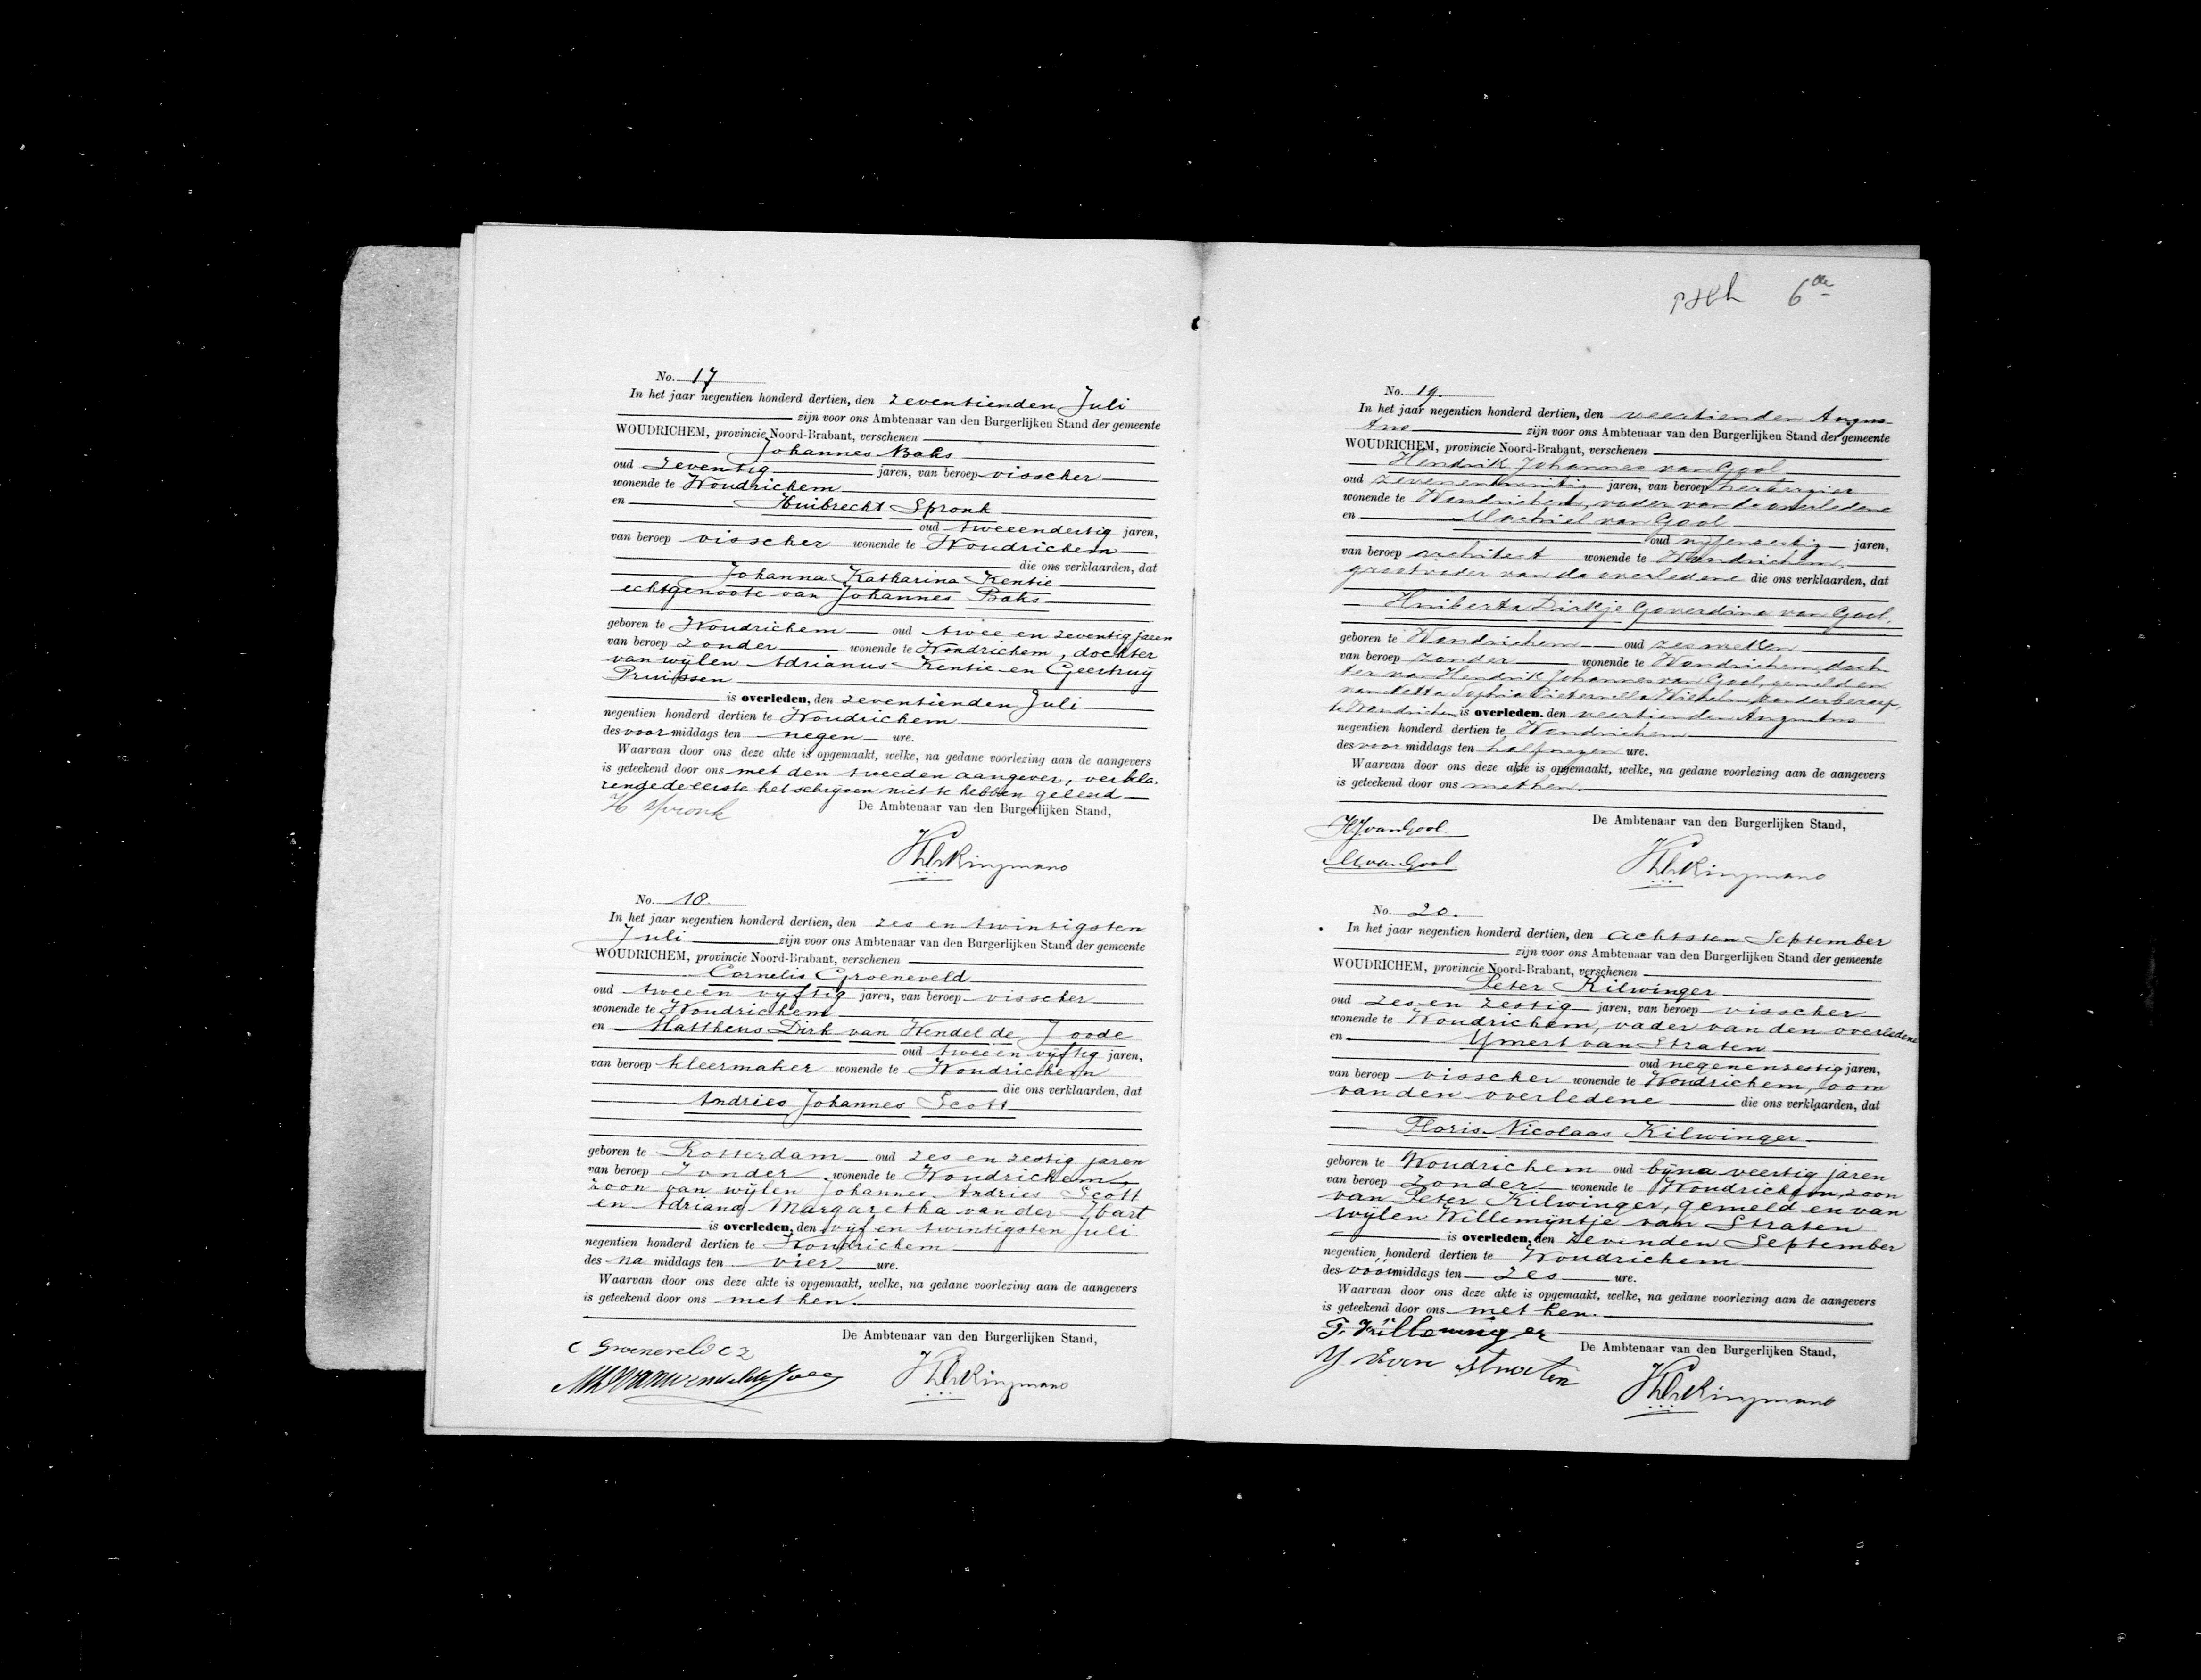 No. 17
In het jaar negentien honderd dertien, den zeventienden Juli
zijn voor ons Ambtenaar van den Burgerlijken Stand der gemeente
WOUDRICHEM, provincie Noord-Brabant, verschenen
Johannes Baks
oud zeventig jaren, van beroep visscher
wonende te Woudrichem
en Huibrecht Spronk
oud tweeendertig jaren,
van beroep visscher wonende te Woudrichem
die ons verklaarden, dat
Johanna Katharina Kentie
echtgenoote van Johannes Baks
geboren te Woudrichem oud twee en zeventig jaren
van beroep zonder wonende te Woudrichem, dochter
van wijlen Adrianus Kentie en Geertruij
Pruissen
is overleden, den zeventienden Juli
negentien honderd dertien te Woudrichem
des voormiddags ten negen ure.
Waarvan door ons deze akte is opgemaakt, welke, na gedane voorlezing aan de aangevers
is geteekend door ons met den tweeden aangever, verkla-
rende de eerste het schrijven niet te hebben geleerd
H Spronk De Ambtenaar van den Burgerlijken Stand,
No. 18.
In het jaar negentien honderd dertien, den zes en twintigsten
Juli zijn voor ons Ambtenaar van den Burgerlijken Stand der gemeente
WOUDRICHEM, provincie Noord-Brabant, verschenen
Cornelis Groeneveld
oud twee en vijftig jaren, van beroep visscher
wonende te Woudrichem
en Mattheus Dirk van Wendel de Joode
oud twee en vijftig jaren,
van beroep kleermaker wonende te Woudrichem
die ons verklaarden, dat
Andries Johannes Scott
geboren te Rotterdam oud zes en zestig jaren
van beroep zonder wonende te Woudrichem,
zoon van wijlen Johannes Andries Scott
en Adriana Margaretha van der Hart
is overleden, den vijf en twintigsten Juli
negentien honderd dertien te Woudrichem
des na middags ten vier ure.
Waarvan door ons deze akte is opgemaakt, welke, na gedane voorlezing aan de aangevers
is geteekend door ons met hen.
De Ambtenaar van den Burgerlijken Stand,
C Groeneveld C z
6de
No. 19.
In het jaar negentien honderd dertien, den veertienden Augus-
tus zijn voor ons Ambtenaar van den Burgerlijken Stand der gemeente
WOUDRICHEM, provincie Noord-Brabant, verschenen
Hendrik Johannes van Gool
oud zevenentwintig jaren, van beroep herbergier
wonende te Woudrichem, vader van de overledene
en Machiel van Gool
oud vijfenzestig jaren,
van beroep architect wonende te Woudrichem,
grootvader van de overledene die ons verklaarden, dat
Huiberta Dirkje Goverdina van Gool,
geboren te Woudrichem oud zes weken
van beroep zonder wonende te Woudrichem, doch-
ter van Hendrik Johannes van Gool, gemeld en
van Netta Sophia Pieternella zonder beroep,
te Woudrichem is overleden, den veertienden Augustus
negentien honderd dertien te Woudrichem
des voor middags ten half negen ure.
Waarvan door ons deze akte is opgemaakt, welke, na gedane voorlezing aan de aangevers
is geteekend door ons met hen.
De Ambtenaar van den Burgerlijken Stand,
H.J. van Gool.
M. van Gool.
No. 20.
In het jaar negentien honderd dertien, den achtsten September
zijn voor ons Ambtenaar van den Burgerlijken Stand der gemeente
WOUDRICHEM, provincie Noord-Brabant, verschenen
Peter Kilwinger
oud zes en zestig jaren, van beroep visscher
wonende te Woudrichem, vader van den overledene
en Ymert van Straten
oud negenenzestig jaren,
van beroep visscher wonende te Woudrichem, oom
van den overledene die ons verklaarden, dat
Floris Nicolaas Kilwinger
geboren te Woudrichem oud bijna veertig jaren
van beroep zonder wonende te Woudrichem, zoon
van Peter Kilwinger, gemeld en van
wijlen Willemijntje van Straten
is overleden, den zevenden September
negentien honderd dertien te Woudrichem
des voormiddags ten zes ure.
Waarvan door ons deze akte is opgemaakt, welke, na gedane voorlezing aan de aangevers
is geteekend door ons met hen.
De Ambtenaar van den Burgerlijken Stand,
Y van Straten